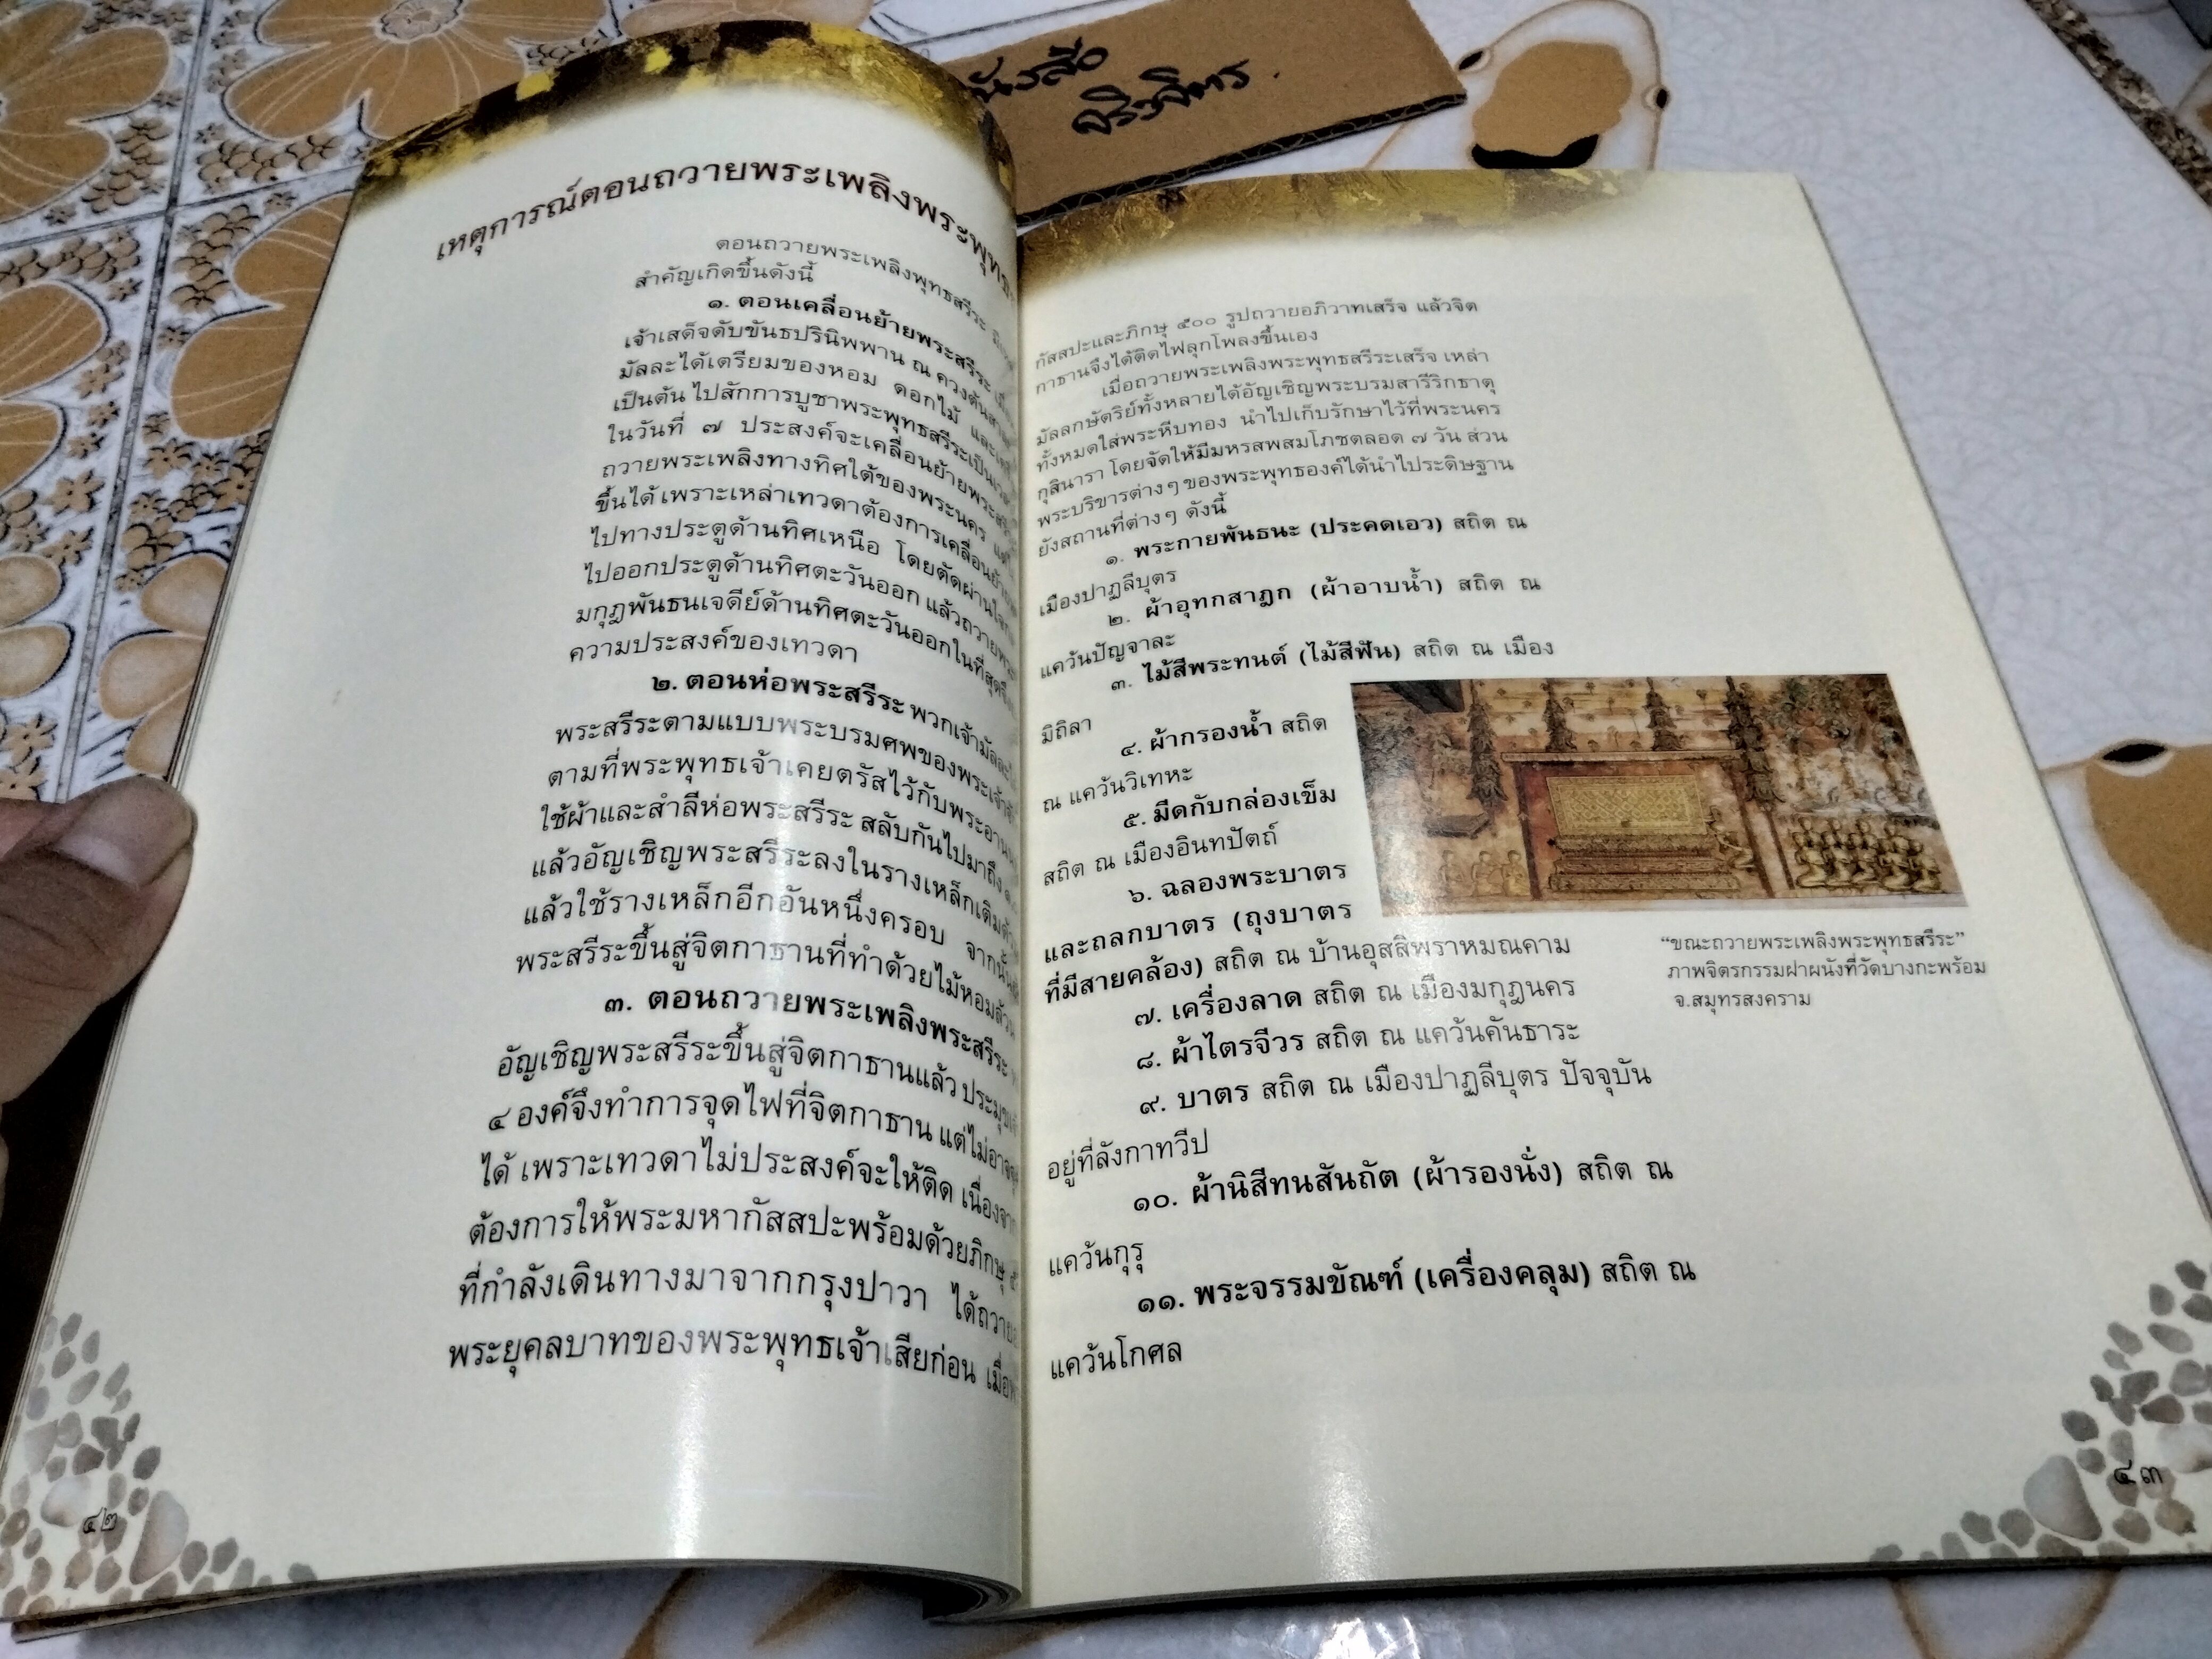 หนังสือ
เหตุการณ์ตอนถวายพระเพลิงพระพุทธ
ตอนถวายพระเพลิงพุทธสรีระ
สำคัญเกิดขึ้นดังนี้
๑. ตอนเคลื่อนย้ายพระสรีระ
เจ้าเสด็จดับขันธปรินิพพาน ณ ควงต้น
มัลละได้เตรียมของหอม ดอกไม้
เป็นต้น ไปสักการบูชาพระพุทธสรีระเป็นเวลา
ในวันที่ ๗ ประสงค์จะเคลื่อนย้ายพระ
ถวายพระเพลิงทางทิศใต้ของพระนคร
ขึ้นได้ เพราะเหล่าเทวดาต้องการเคลื่อนย้าย
ไปทางประตูด้านทิศเหนือ โดยตัดผ่าน
ไปออกประตูด้านทิศตะวันออก แล้วถวาย
มกุฏพันธนเจดีย์ด้านทิศตะวันออกในที่สุด
ความประสงค์ของเทวดา
๒. ตอนห่อพระสรีระ พวกเจ้ามัลละ
พระสรีระตามแบบพระบรมศพของพระเจ้า
ตามที่พระพุทธเจ้าเคยตรัสไว้กับพระอานนท์
ใช้ผ้าและสำลีห่อพระสรีระ สลับกันไปมาถึง
แล้วอัญเชิญพระสรีระลงในรางเหล็กเติม
แล้วใช้รางเหล็กอีกอันหนึ่งครอบ จากนั้น
พระสรีระขึ้นสู่จิตกาธานที่ทำด้วยไม้หอมล้วน
๓. ตอนถวายพระเพลิงพระสรีระ
อัญเชิญพระสรีระขึ้นสู่จิตกาธานแล้ว ประมุข
๔ องค์จึงทำการจุดไฟที่จิตกาธาน แต่ไม่อาจ
ได้ เพราะเทวดาไม่ประสงค์จะให้ติด เนื่องจาก
ต้องการให้พระมหากัสสปะพร้อมด้วยภิกษุ
ที่กำลังเดินทางมาจากกรุงปาวา ได้ถวาย
พระยุคลบาทของพระพุทธเจ้าเสียก่อน
๔๒
กัสสปะและภิกษุ ๕๐๐ รูปถวายอภิวาทเสร็จ แล้วจิต
กาธานจึงได้ติดไฟลุกโพลงขึ้นเอง
เมื่อถวายพระเพลิงพระพุทธสรีระเสร็จ เหล่า
มัลลกษัตริย์ทั้งหลายได้อัญเชิญพระบรมสารีริกธาตุ
ทั้งหมดใส่พระหีบทอง นำไปเก็บรักษาไว้ที่พระนคร
กุสินารา โดยจัดให้มีมหรสพสมโภชตลอด ๗ วัน ส่วน
พระบริขารต่างๆ ของพระพุทธองค์ได้นำไปประดิษฐาน
ยังสถานที่ต่างๆ ดังนี้
๑. พระกายพันธนะ (ประคดเอว) สถิต ณ
เมืองปาฏลีบุตร
๒. ผ้าอุทกสาฎก (ผ้าอาบน้ำ) สถิต ณ
แคว้นปัญจาละ
๓. ไม้สีพระทนต์ (ไม้สีฟัน) สถิต ณ เมือง
มิถิลา
๔. ผ้ากรองน้ำ สถิต
ณ แคว้นวิเทหะ
๕. มีดกับกล่องเข็ม
สถิต ณ เมืองอินทปัตถ์
๖. ฉลองพระบาตร
และถลกบาตร (ถุงบาตร
ที่มีสายคล้อง) สถิต ณ บ้านอุสสิพราหมณคาม
๗. เครื่องลาด สถิต ณ เมืองมกุฎนคร
๘. ผ้าไตรจีวร สถิต ณ แคว้นคันธาระ
๙. บาตร สถิต ณ เมืองปาฏลีบุตร ปัจจุบัน
อยู่ที่ลังกาทวีป
๑๐. ผ้านิสีทนสันถัต (ผ้ารองนั่ง) สถิต ณ
แคว้นกุรุ
๑๑. พระจรรมขัณฑ์ (เครื่องคลุม) สถิต ณ
แคว้นโกศล
“ขณะถวายพระเพลิงพระพุทธสรีระ”
ภาพจิตรกรรมฝาผนังที่วัดบางกะพร้อม
จ.สมุทรสงคราม
๔๓